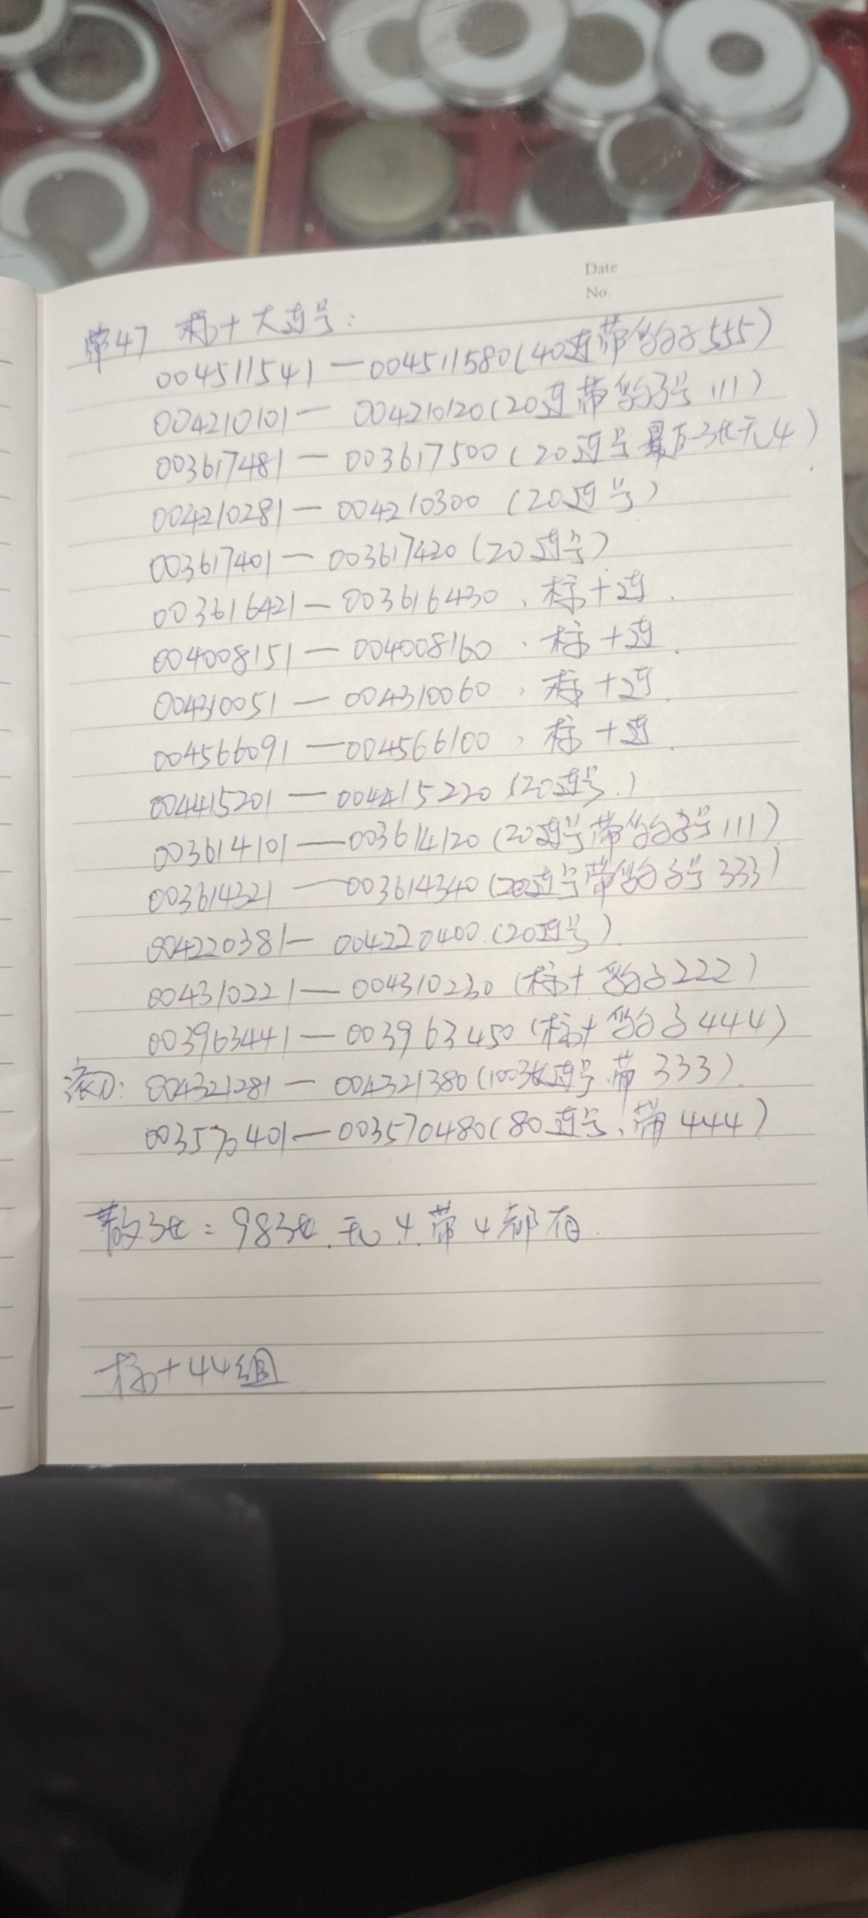 Date
No.
带47 标十大连号:
004511541—004511580(40连带豹子555)
004210101—004210120(20连带豹子号111)
003617481—003617500(20连号最后一张无4)
004210281—004210300(20连号)
003617401—003617420(20连号)
003616421—003616430、标十连.
004008151—004008160、标十连.
004310051—004310060、标十连.
004566091—004566100、标十连.
004415201—004415220(20连号.)
003614101—003614120(20连号带豹子号111)
003614321—003614340(20连号带豹子号333)
004220381—004220400(20连号)
004310221—004310230(标十豹子222)
003963441—003963450(标十豹子444)
滚①: 004321281—004321380(100张连号.带333)
003570401—003570480(80连号,带444)
散张:98张.无4.带4都有
标十44组